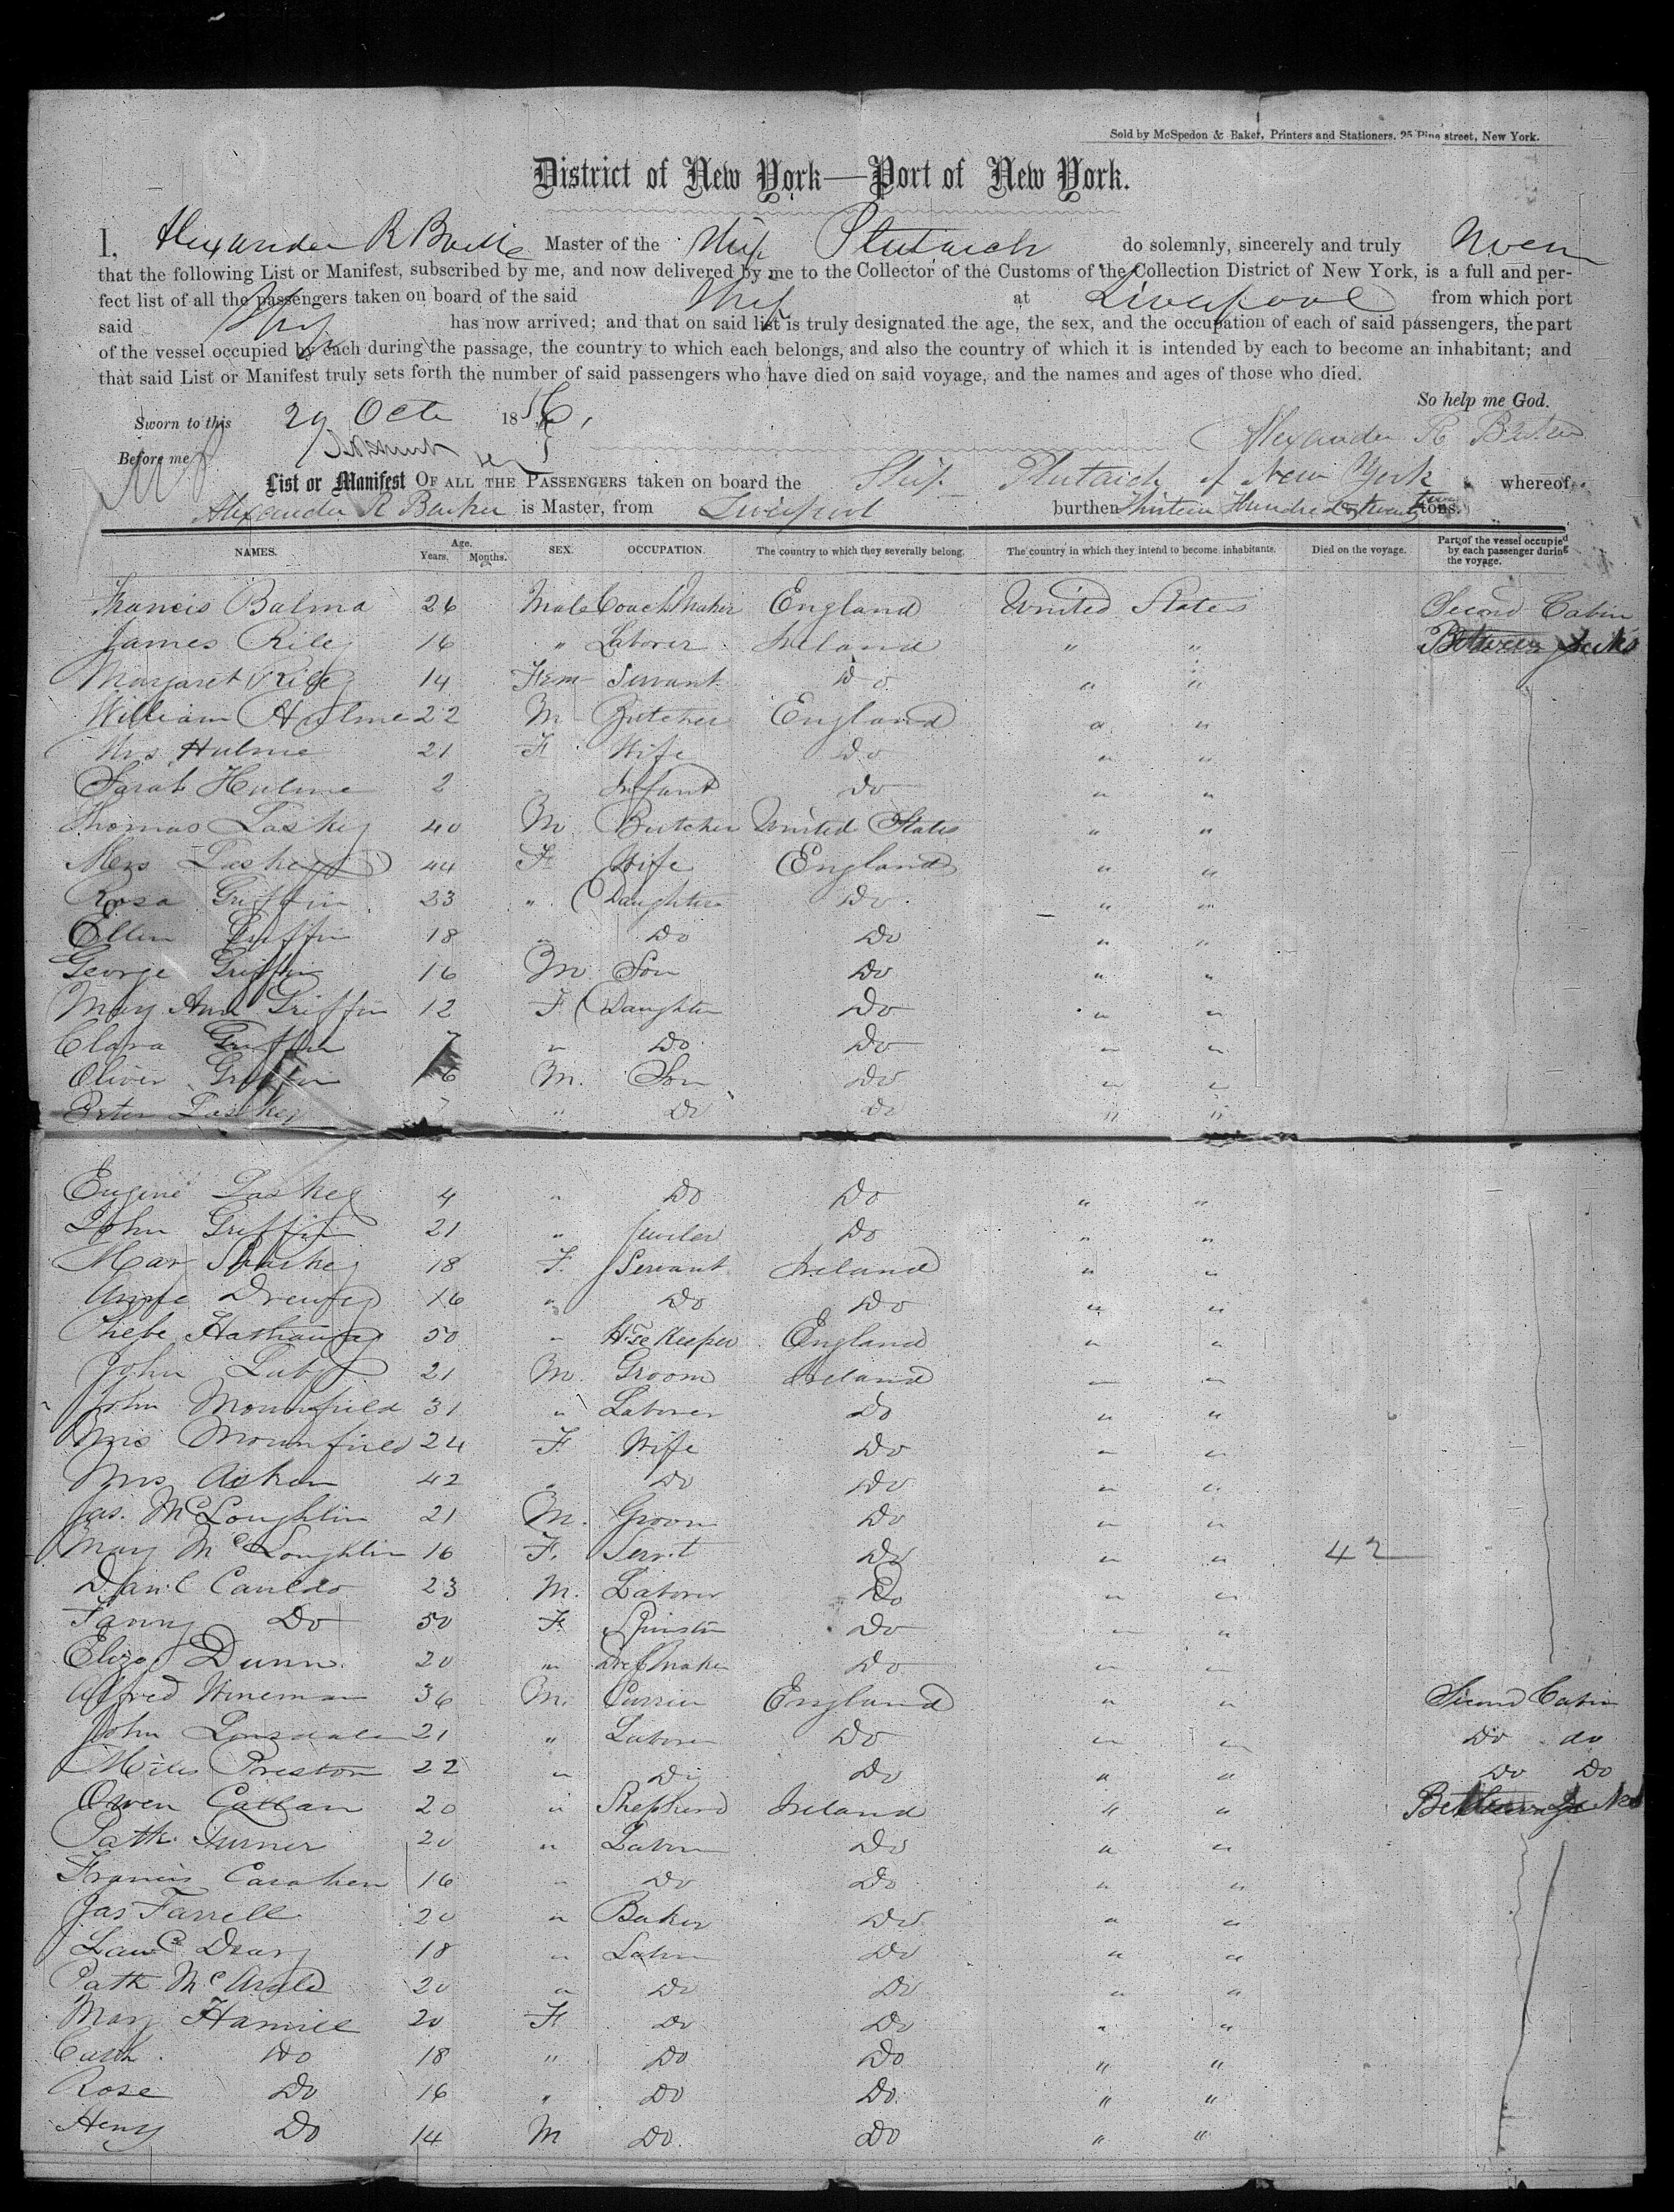 Sold by McSpedon & Baker, Printers and Stationers, 25 Pine street, New York.
District of New York—Port of New York.
I, Alexander R Master of the Ship Plutarch do solemnly, sincerely and truly
that the following List or Manifest, subscribed by me, and now delivered by me to the Collector of the Customs of the Collection District of New York, is a full and per-
fect list of all the passengers taken on board of the said Ship at Liverpool from which port
said Ship has now arrived; and that on said list is truly designated the age, the sex, and the occupation of each of said passengers, the part
of the vessel occupied by each during the passage, the country to which each belongs, and also the country of which it is intended by each to become an inhabitant; and
that said List or Manifest truly sets forth the number of said passengers who have died on said voyage, and the names and ages of those who died.
So help me God.
Sworn to this 29 Octr 1856,
Alexander R
Before me
List or Manifest OF ALL THE PASSENGERS taken on board the Ship Plutarch of New York whereof
Alexander R Barker is Master, from Liverpool burthen Thirteen Hundred & twenty tons.
NAMES. Age. Years. Months. SEX. OCCUPATION. The country to which they severally belong. The country in which they intend to become inhabitants. Died on the voyage. Part of the vessel occupied by each passenger during the voyage.
Francis Balma 26 Male Coach Maker England United States Second Cabin
James Riley 16 " Laborer Ireland " " Between Decks
Margaret Riley 14 Fem Servant Do " "
William Hulme 22 M Butcher England " "
Mrs Hulme 21 F Wife Do " "
Sarah Hulme 2 " Infant Do " "
Thomas Laskey 40 M Butcher United States " "
Mrs Laskey 44 F Wife England " "
Rosa Griffin 23 " Daughter Do " "
Ellen Griffin 18 " Do Do " "
George Griffin 16 M Son Do " "
Mary Ann Griffin 12 F Daughter Do " "
Clara Griffin 7 " Do Do " "
Oliver Griffin 6 M. Son Do " "
Peter Laskey 7 " Do Do " "
Eugine Laskey 4 " Do Do " "
John Griffin 21 " Do " "
Mary 18 F. Servant Ireland " "
16 " Do Do " "
Phebe Hathaway 50 " Hse Keeper England " "
John 21 M. Groom Ireland " "
John Mounfield 31 " Laborer Do " "
Mrs Mounfield 24 F Wife Do " "
Mrs Aiken 42 " Do Do " "
Jas. McLoughlin 21 M. Groom Do " "
Mary McLoughlin 16 F. Servt Do " " 42
Danl 23 M. Laborer Do " "
Fanny Do 50 F Spinster Do " "
Eliza Dunn 20 " Dress Maker Do " "
Alfred Wineman 36 M. Currier England " " Second Cabin
John Lonsdale 21 " Laborer Do " " Do do
Miles Preston 22 " Do Do " " Do Do
Owen Callan 20 " Shepherd Ireland " " Between Decks
Patk. Turner 20 " Labor Do " "
Francis 16 " Do Do " "
Jas Farrell 20 " Baker Do " "
18 " Labor Do " "
Patk 20 " Do Do " "
Mary Hamill 20 F Do Do " "
Cath Do 18 " Do Do " "
Rose Do 16 " Do Do " "
Henry Do 14 M Do Do " "